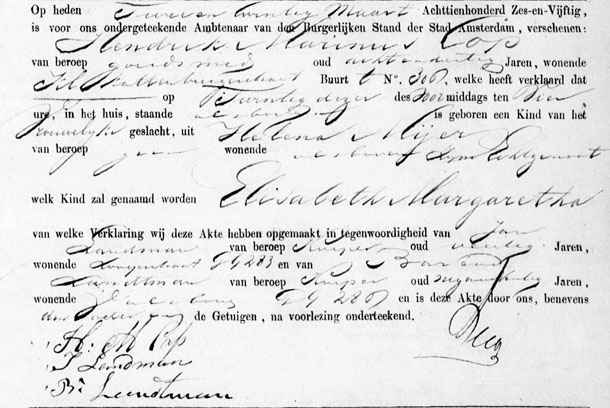 Op heden Tweeen twintig Maart Achttienhonderd Zes-en-Vijftig,
is voor ons ondergeteekende Ambtenaar van den Burgerlijken Stand der Stad Amsterdam, verschenen:
Hendrik Marinus Cop
van beroep goudsmid oud achtendertig Jaren, wonende
Buurt No. welke heeft verklaard dat
op Twintig dezer des middags ten Vier
ure, in het huis, staande is geboren een Kind van het
Vrouwelijk geslacht, uit Helena Mijer
van beroep geen wonende Echtgenoot
welk Kind zal genaamd worden Elisabeth Margaretha
van welke Verklaring wij deze Akte hebben opgemaakt in tegenwoordigheid van Jan
Landman van beroep Kuiper oud Jaren,
wonende en van Barend
Landtman van beroep Kuiper oud Jaren,
wonende en is deze Akte door ons, benevens
de Getuigen, na voorlezing onderteekend.
H: M Cop
J Landman
B: Landtman